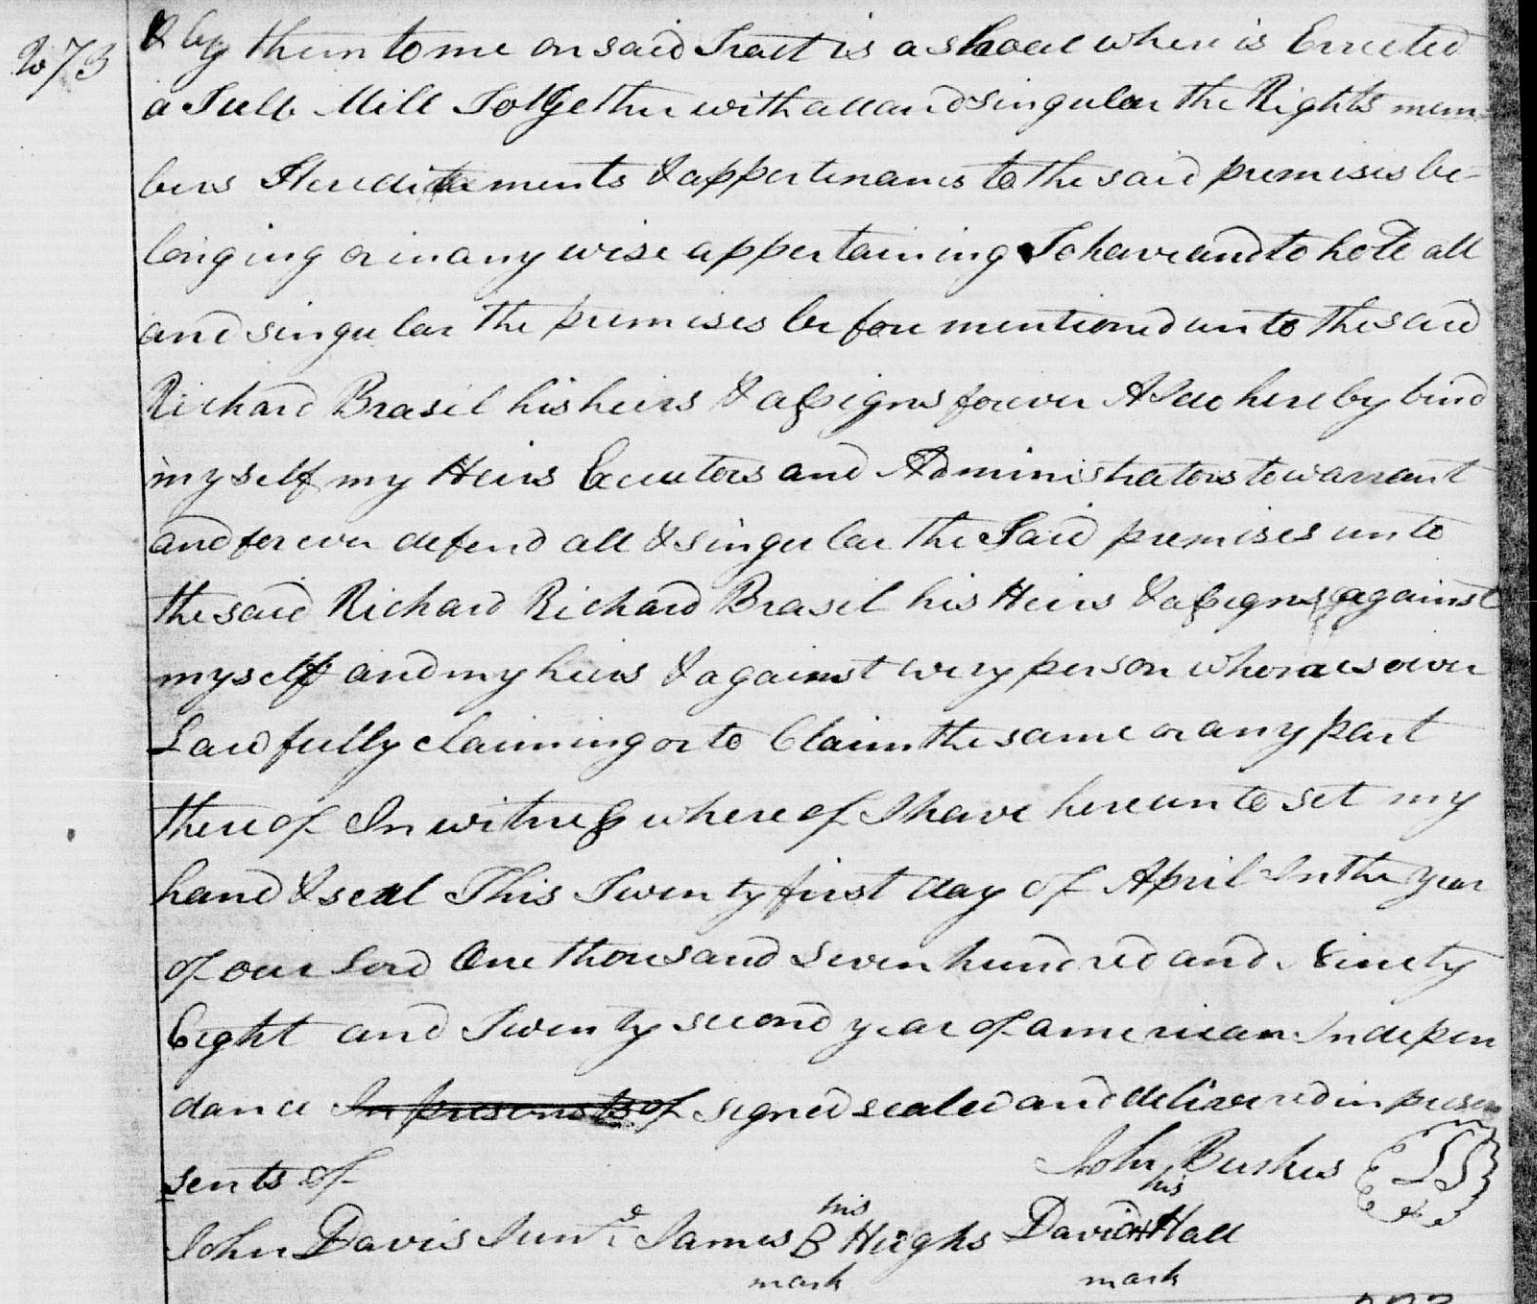 & by them to me on said Tract is a shoal where is Errected
a Tub Mill Together with all and singular the Rights mem-
bers Hereditaments & appertenances to the said premises be-
longing or in any wise appertaining To have and to hold all
and singular the premises before mentioned unto the said
Richard Brasil his heirs & assigns forever & I do hereby bind
myself my Heirs Executors and Administrators to warrant
and forever defend all & singular the Said premises unto
the said Richard Richard Brasil his Heirs & assigns against
myself and my heirs & against every person whomesoever
Lawfully claiming or to Claim the same or any part
there of In witness where of I have hereunto set my
hand & seal This Twenty first day of April In the year
of our Lord One thousand seven hundred and Ninety
Eight and Twenty second year of american Indepen
dance In presents of signed sealed and delivered in pre
sents of
John Davis Junr James his B mark Hughs David his H mark Hall
John Bushes LS